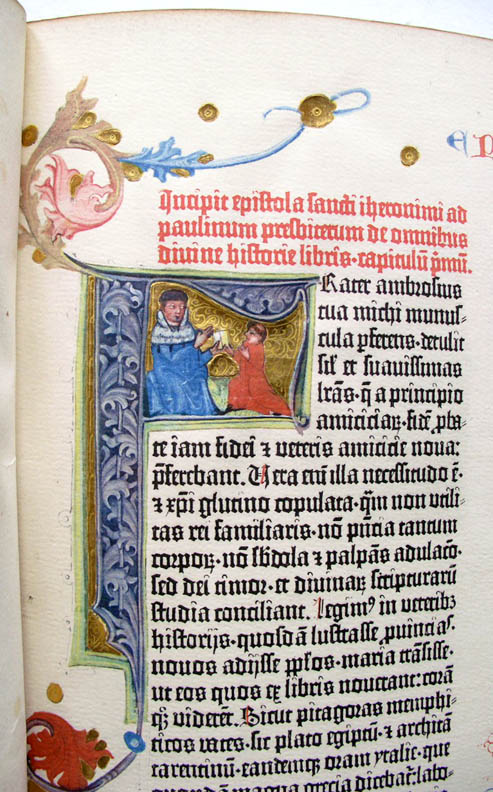 Incipit epistola sancti iheronimi ad
paulinum presbiterum de omnibus
divine historie libris·capitulū pⁱmū.
Frater ambrosius
tua michi munus-
cula ꝑferens·detulit
sil’ et suavissimas
lrās·q̄ a principio
amiciciaꝝ·fidē ꝓba-
te iam fidei ⁊ veteris amicicie nova:
p̄ferebant. Vera em̄ illa necessitudo ē·
⁊ xp̄i glutino copulata·qm̄ non utili-
tas rei familiaris·nō pn̄cia tantum
corpoꝝ·nō sb̄dola ⁊ palpās adulacō·
sed dei timor·et divinaꝝ scripturarū
studia conciliant. Legim⁹ in veteribꝫ
historijs·quosdā lustrasse ꝓuincias·
novos adijsse pp̄los·maria trāsisse·
ut eos quos ex libris noverant: corā
qꝫ viderēt. Sicut pitagoras memphi-
ticos vates·sic plato egiptū·⁊ architā
tarentinū·eandemqꝫ oram ytalie·que
quondam magna grecia dicebat᷑·labo-